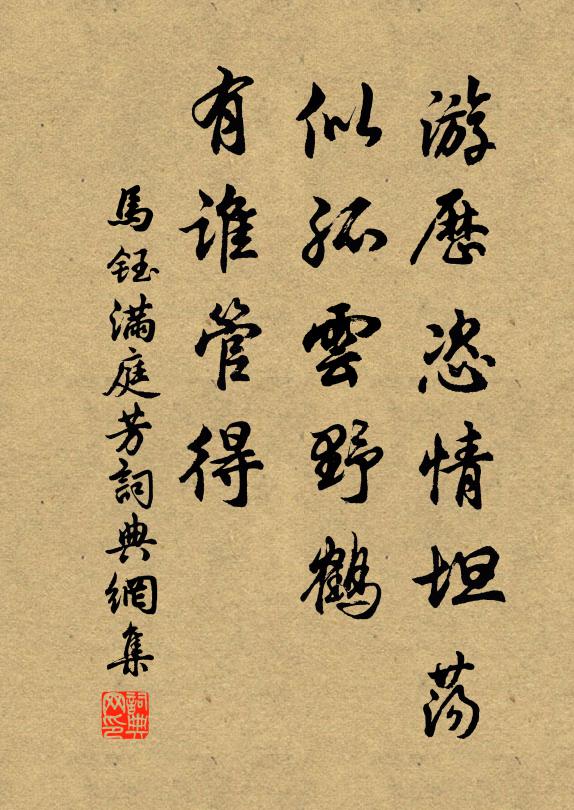 游歷恣情坦蕩
似孤雲野鶴
有誰管得
馬鈺滿庭芳詞典網集
詞典网印